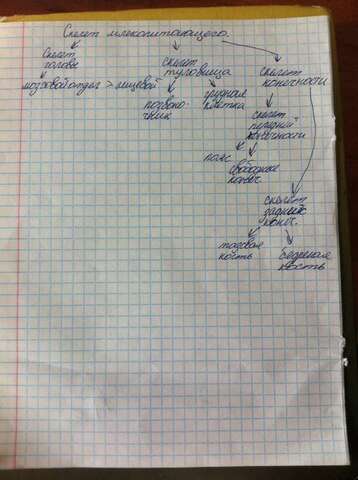 Скелет млекопитающего
Скелет
головы
мозговой отдел > лицевой
скелет
туловища
позвоно-
чник
грудная
клетка
скелет
конечности
скелет
передней
конечности
пояс
свободные
конеч.
скелет
задней
конеч.
тазовая
кость
бедренная
кость